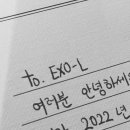 to. EXO-L
여러분 안녕하세
2022년